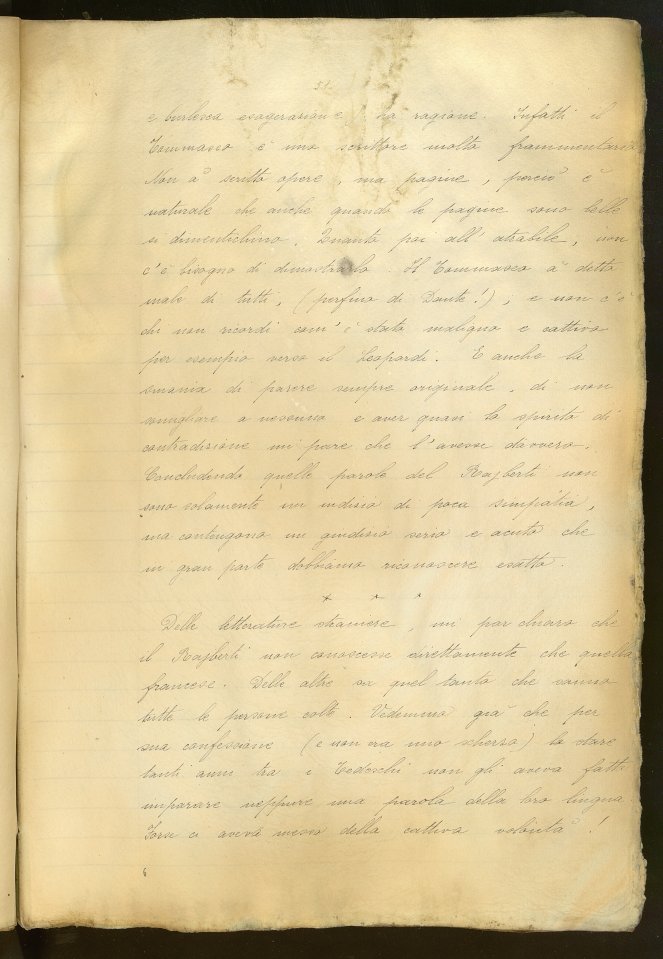 51
e burlesca esagerazione, ha ragione. Infatti il
Tommaseo è uno scrittore molto frammentario
Non à scritto opere, ma pagine, perciò è
naturale che anche quando le pagine sono belle
si dimentichino. Quanto poi all'atrabile, non
c'è bisogno di dimostrarlo. Il Tommaseo à detto
male di tutti, (perfino di Dante!), e non c'è
chi non ricordi com'è stato maligno e cattivo
per esempio verso il Leopardi. E anche la
smania di parere sempre originale, di non
somigliare a nessuno e aver quasi lo spirito di
contradizione mi pare che l'avesse davvero.
Concludendo quelle parole del Rajberti non
sono solamente un indizio di poca simpatia,
ma contengono un giudizio serio e acuto che
in gran parte dobbiamo riconoscere esatto.
* * *
Delle letterature straniere, mi par chiaro che
il Rajberti non conoscesse direttamente che quella
francese. Delle altre sa quel tanto che sanno
tutte le persone colte. Vedemmo già che per
sua confessione (e non era uno scherzo) lo stare
tanti anni tra i Tedeschi non gli aveva fatt
imparare neppure una parola della loro lingua.
Forse ci aveva messo della cattiva volontà!
6